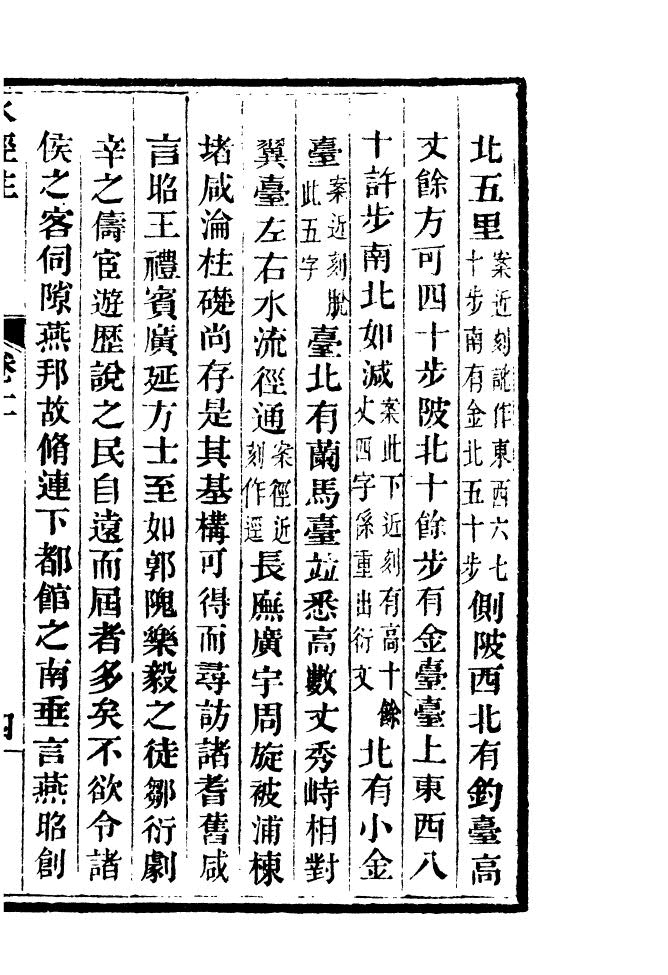 北五里案近刻訛作東西六七十步南有金北五十步側陂西北有釣臺高
丈餘方可四十步陂北十餘步有金臺臺上東西八
十許步南北如減案此下近刻有高十餘丈四字係重出衍文北有小金
臺案近刻脫此五字臺北有蘭馬臺竝悉高數丈秀峙相對
翼臺左右水流徑通案徑近刻作逕長廡廣宇周旋被浦棟
堵咸淪柱礎尚存是其基構可得而尋訪諸耆舊咸
言昭王禮賓廣延方士至如郭隗樂毅之徒鄒衍劇
辛之儔宦遊歷說之民自遠而屆者多矣不欲令諸
侯之客伺隙燕邦故脩連下都館之南垂言燕昭創
水經注